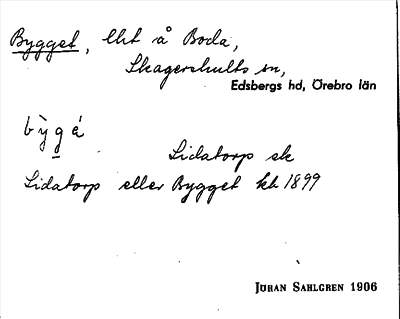 Bygget, lht å Boda,
Skagershults sn,
Edsbergs hd, Örebro län
bỳgé
Lidatorp ek
Lidatorp eller Bygget kb 1899
JÖRAN SAHLGREN 1906